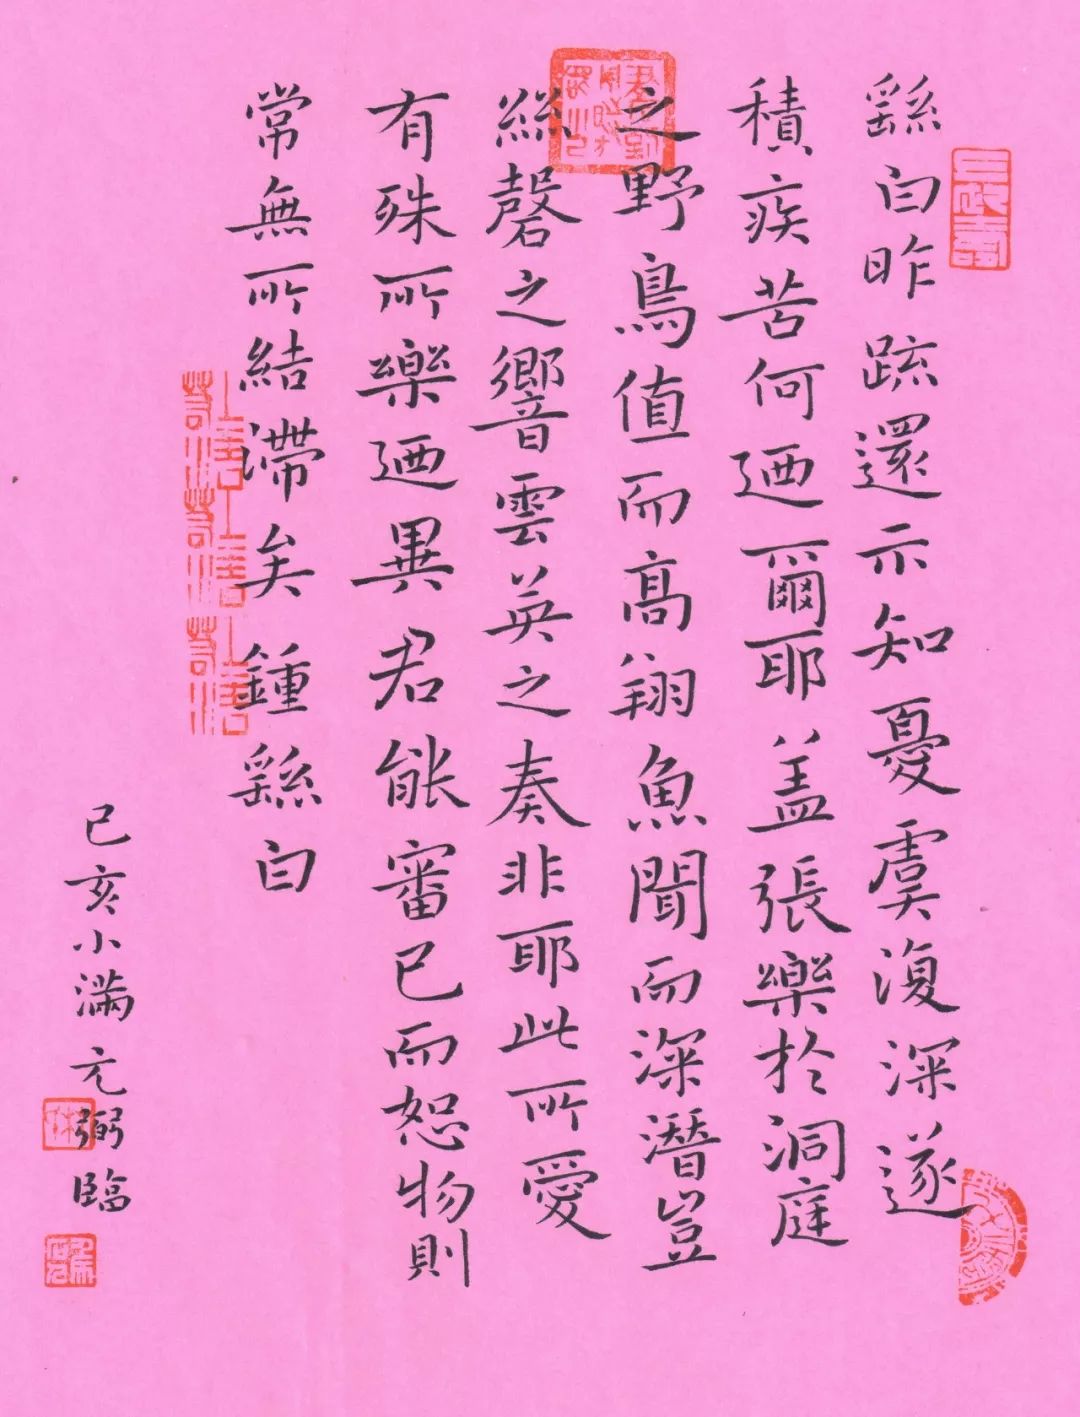 繇白昨疏還示知憂虞復深遂
積疾苦何迺爾耶盖張樂於洞庭
之野鳥值而髙翔魚聞而深潛豈
絲磬之響雲英之奏非耶此所愛
有殊所樂迺異君能審已而恕物則
常無所結滯矣鍾繇白
己亥小滿元弼臨